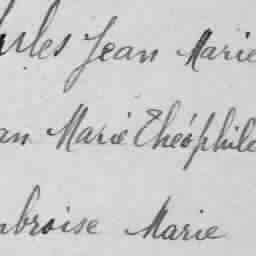 rles Jean Marie
an Marie Théophile
mbroise Marie